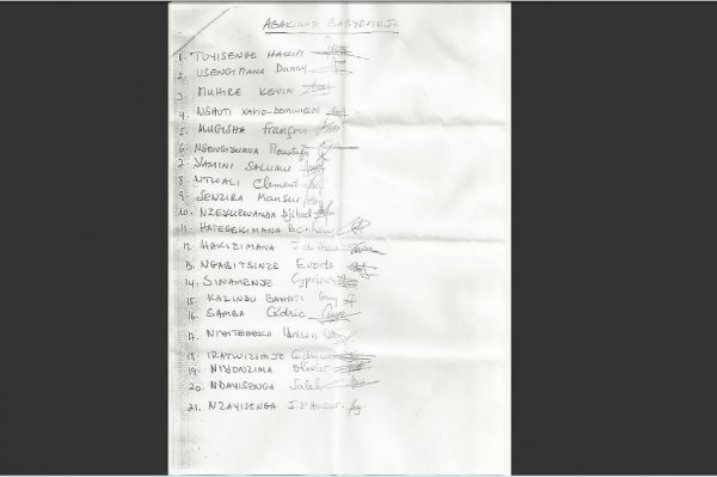 ABAKINNYI BABYEMEJE
1. TUYISENGE HAKIM
2. USENGIMANA Danny
3. MUHIRE KEVIN
4. NSHUTI SAVIO-DOMINIQUE
5. MUGISHA François
6. NSENGIYUMVA Moustafa
7. YAMINI SALUMU
8. NTWALI Clement
9. SENZIRA Mansur
10. NZEYURWANDA Djihad
11. HATEGEKIMANA
12. HAKIZIMANA
13. NGABITSINZE Evode
14. SINAMENJE Cyprien
15. KAZINDU BAHATI Guy
16. SAMBA Cédric
17.
18. IRATWIZIMIJE
19. NIYONZIMA Olivier
20. NDAYISENGA Saleh
21. NZAYISENGA J. D'Amour